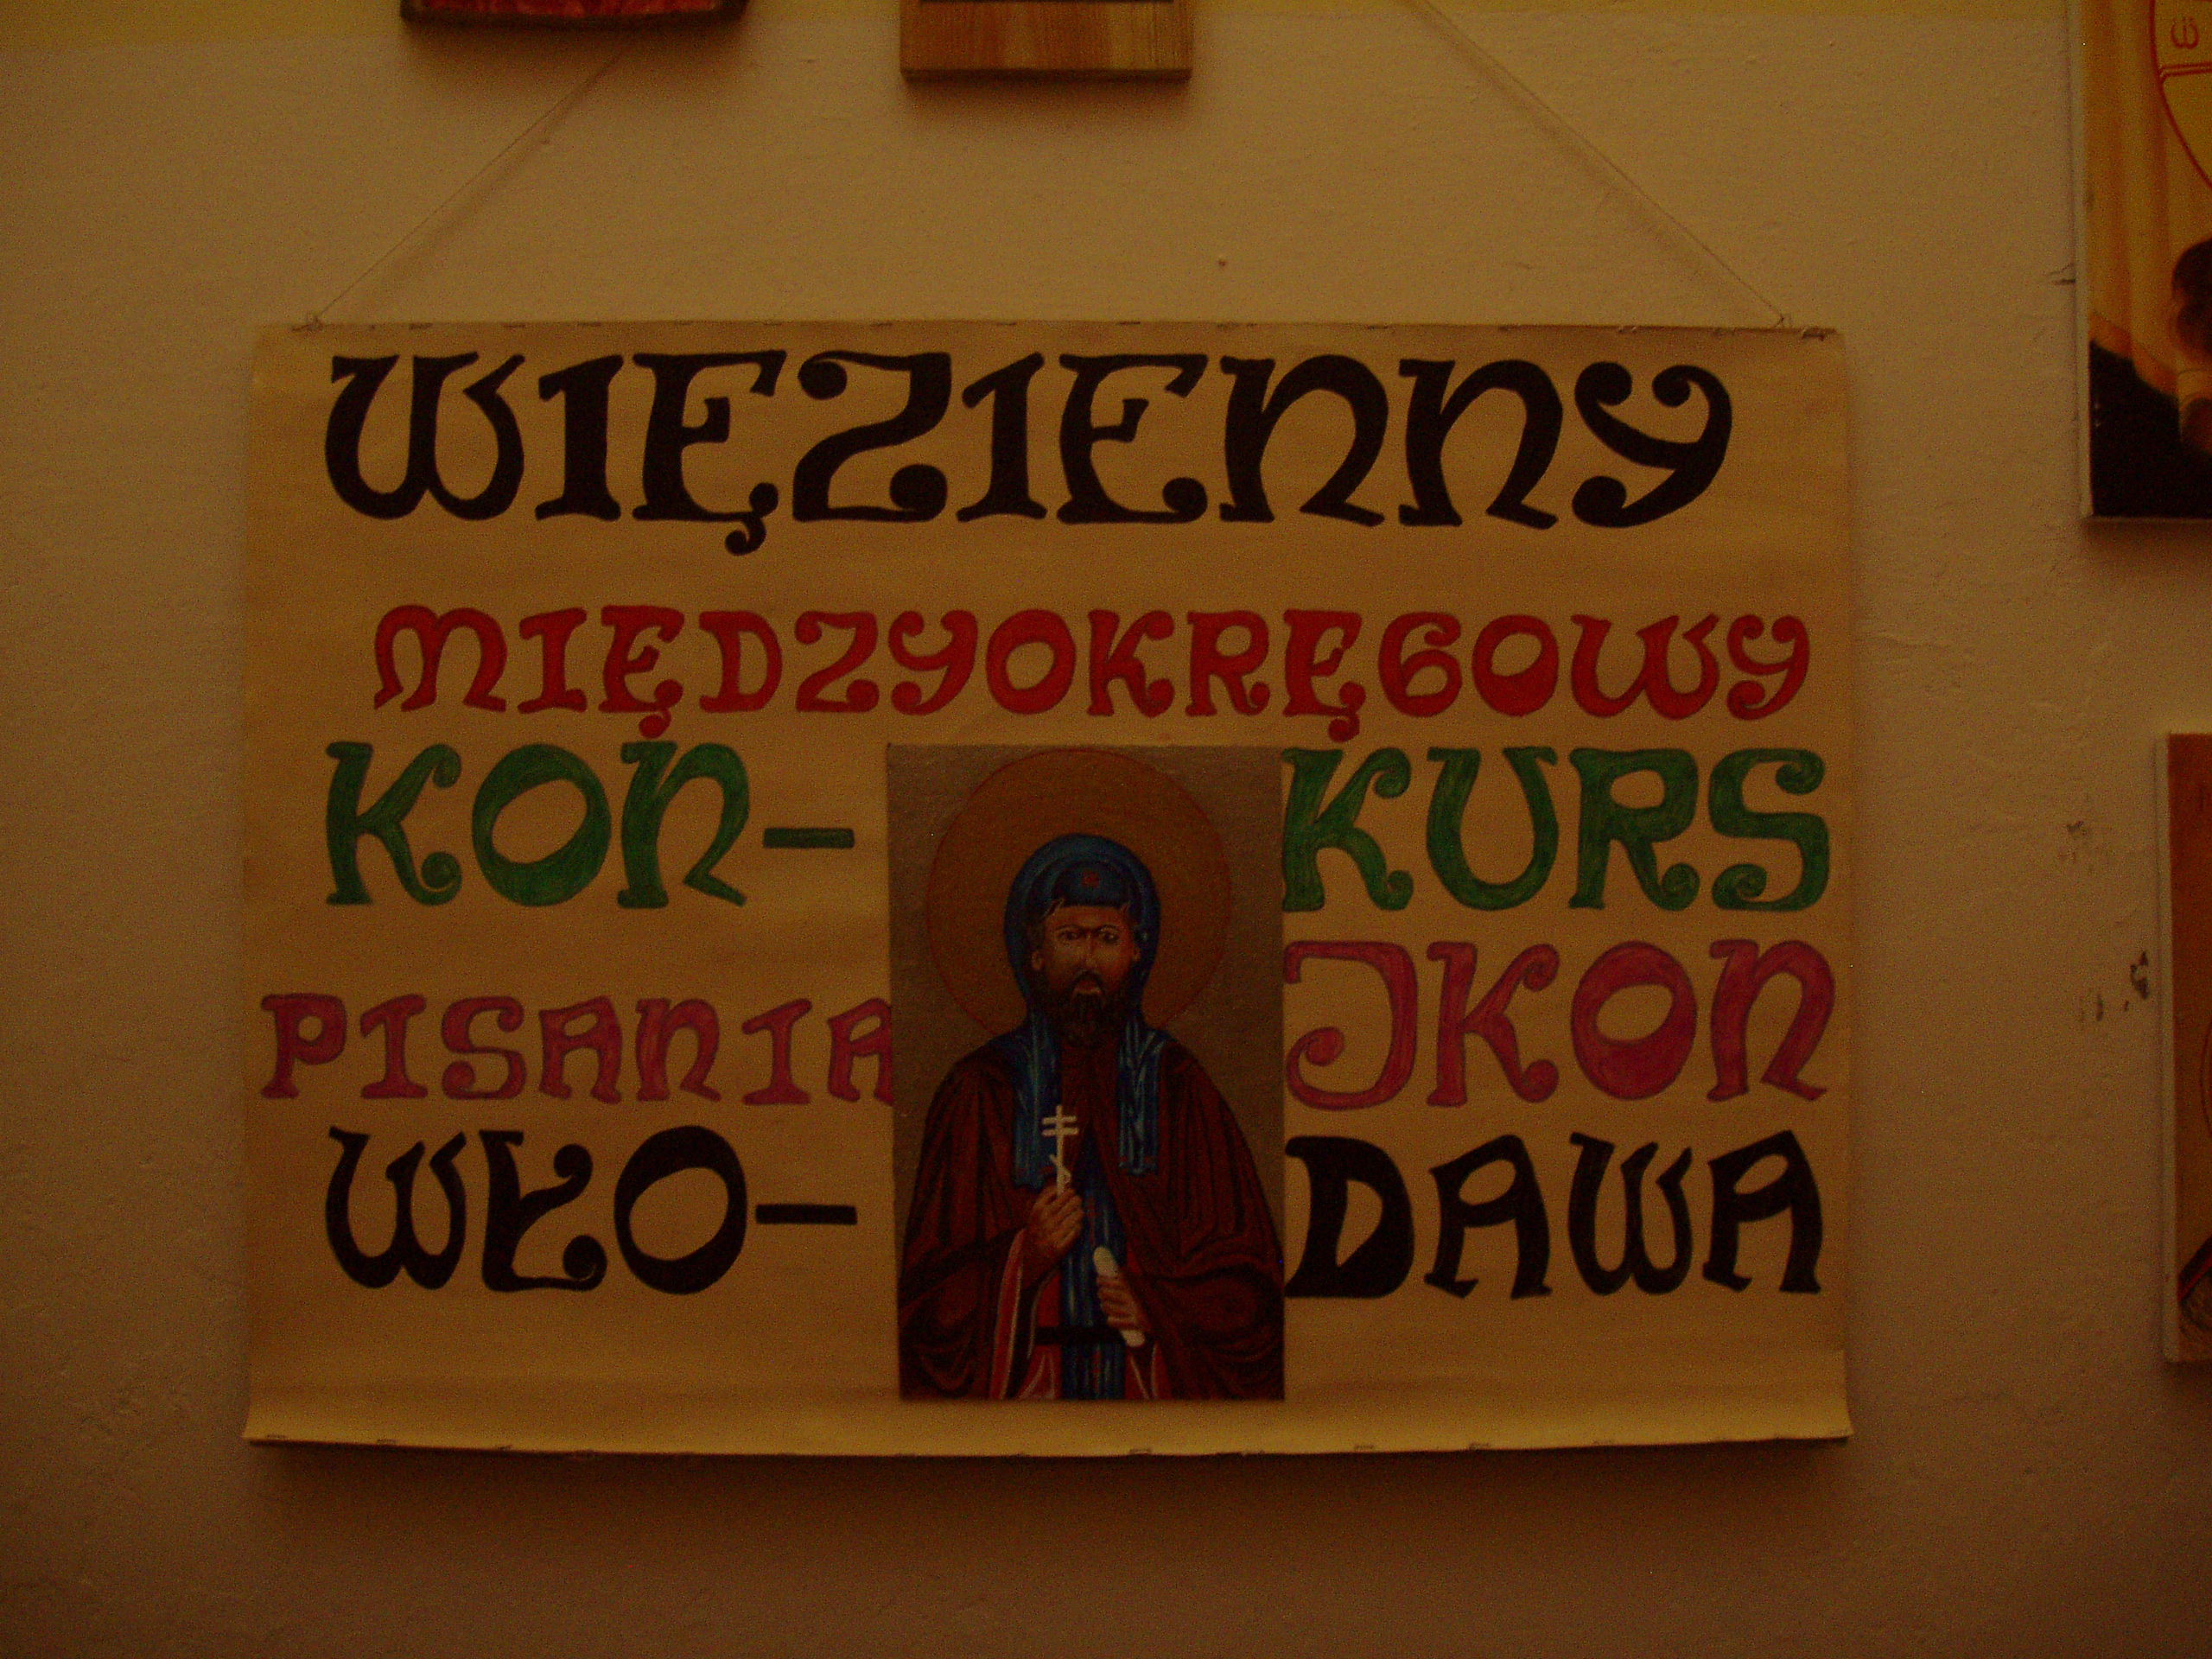 WIĘZIENNY
MIĘDZYOKRĘGOWY
KON- KURS
PISANIA IKON
WŁO- DAWA